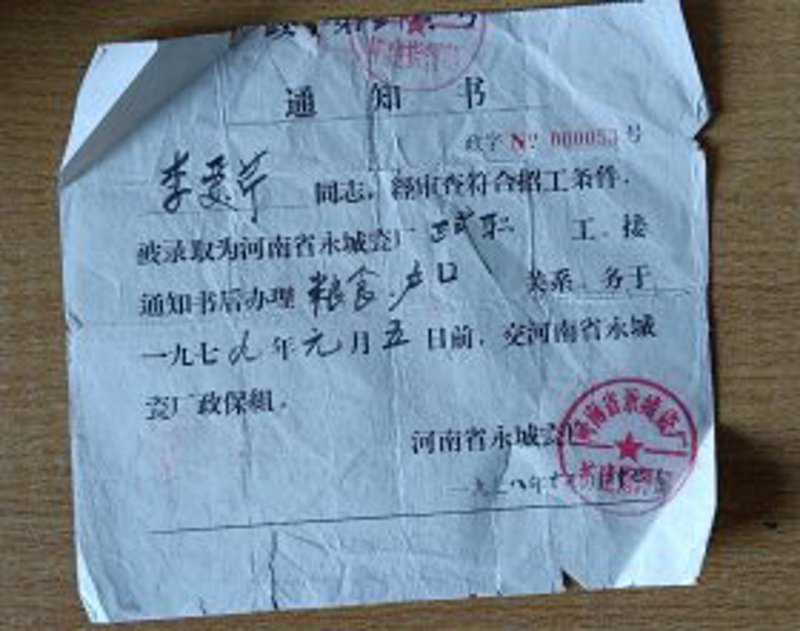 通知书
政字 № 000053 号
李爱芹 同志，经审查符合招工条件．
被录取为河南省永城瓷厂 试职 工．接
通知书后办理 粮食．户口 关系．务于
一九七九年元月五日前．交河南省永城
瓷厂政保组．
河南省永城瓷厂